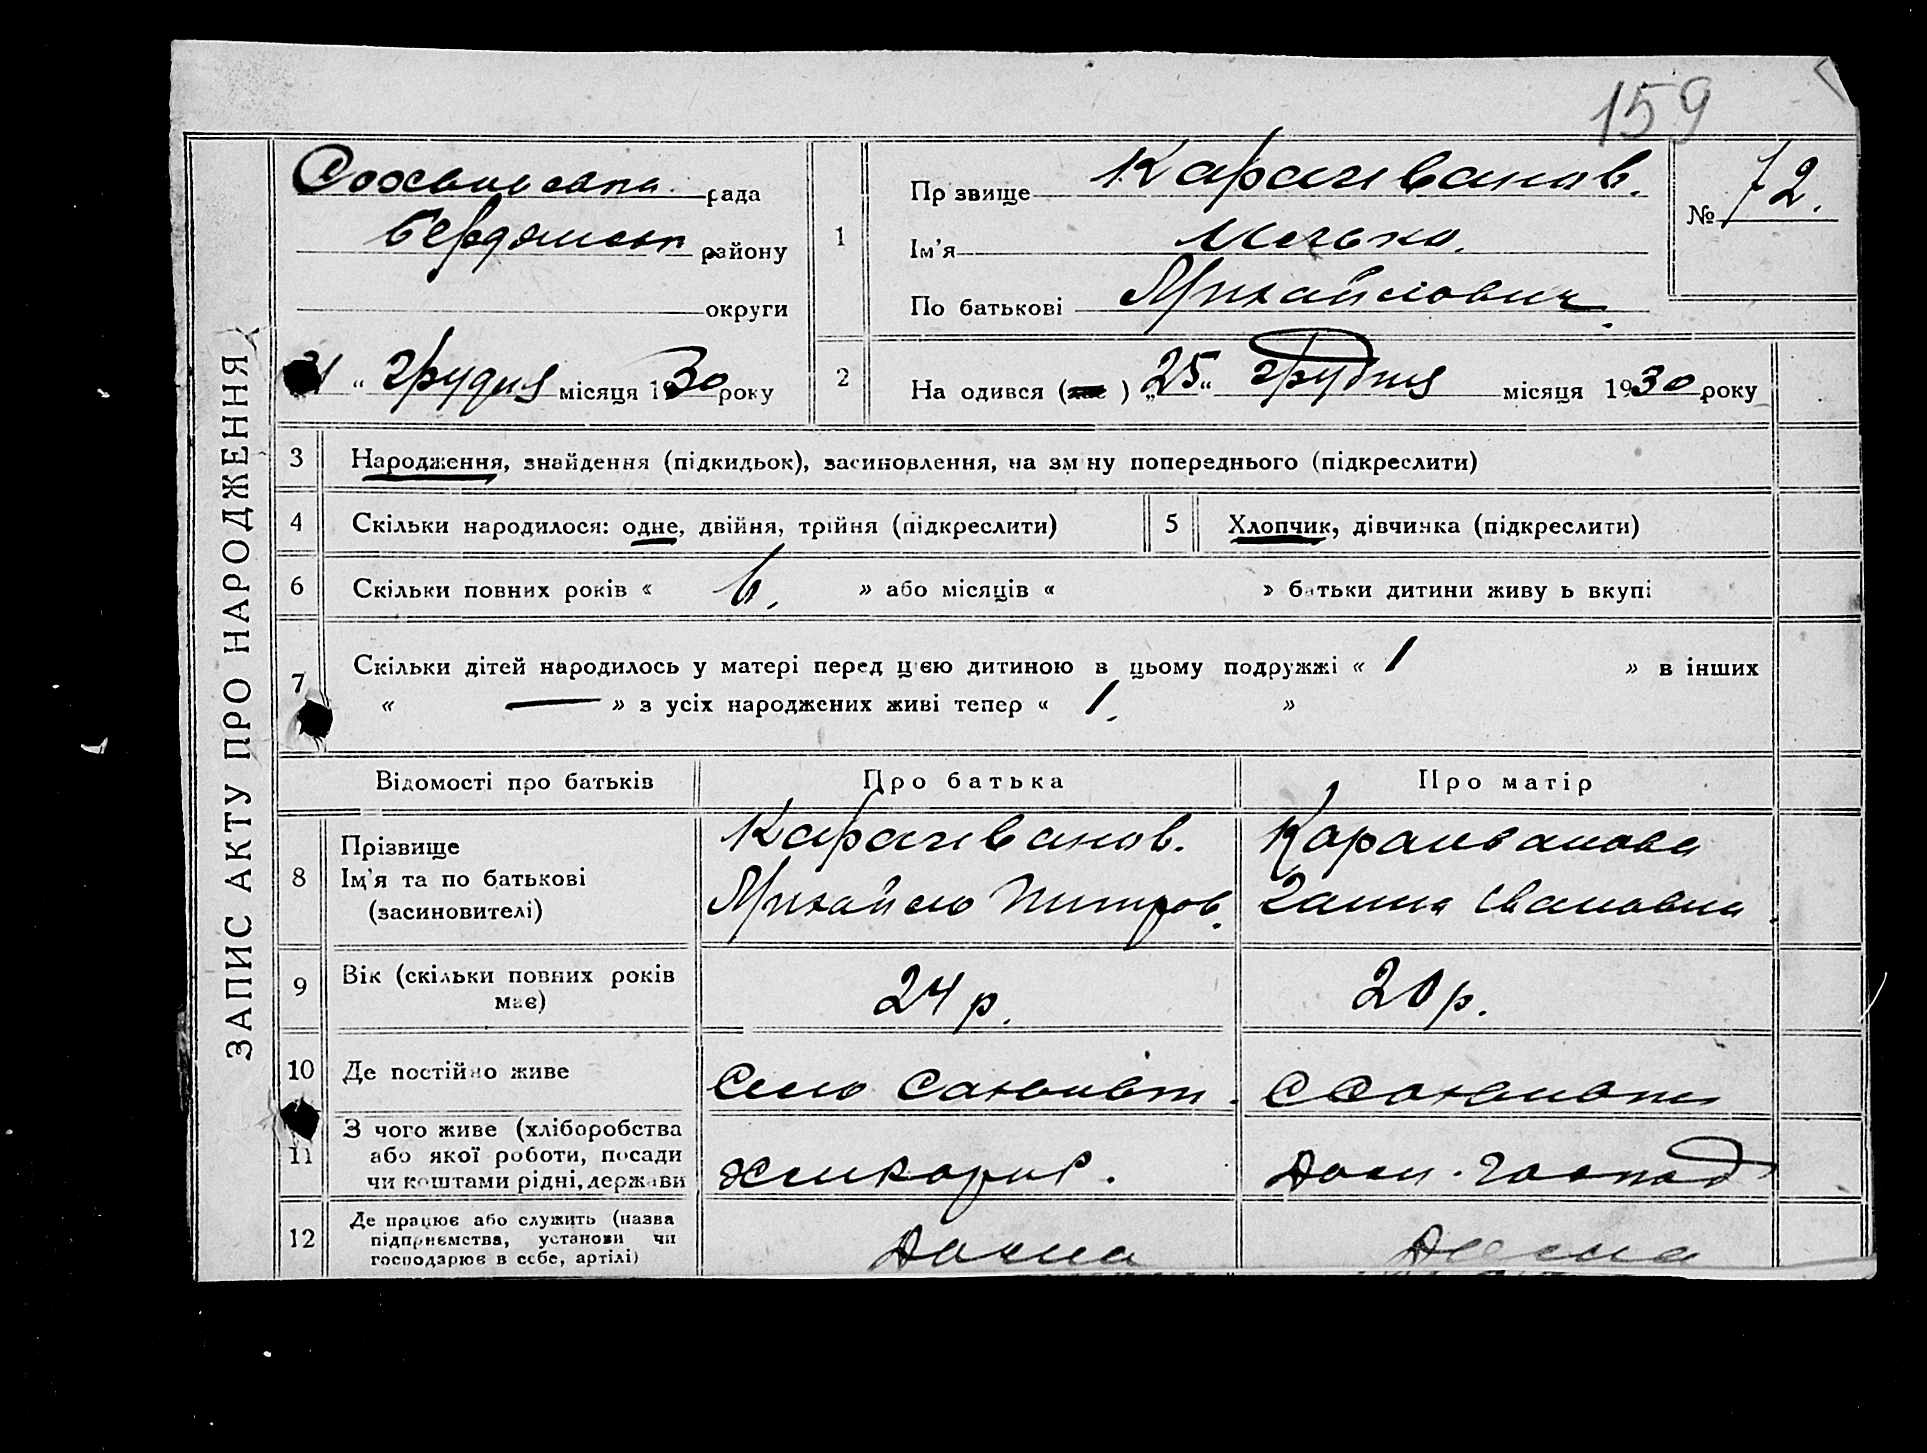 159
ЗАПИС АКТУ ПРО НАРОДЖЕННЯ
рада
Бердянськ району
округи
31 " грудня місяця 1930 року
1
Пр звище Карагиванов.
Ім'я
По батькові Михайлович.
№ 72.
2
На одився ( ) „25" грудня місяця 1930 року
3
Народження, знайдення (підкидьок), засиновлення, на зм ну попереднього (підкреслити)
4
Скільки народилося: одне, двійня, трійня (підкреслити)
5
Хлопчик, дівчинка (підкреслити)
6
Скільки повних років « 6. » або місяців « » батьки дитини живу ь вкупі
7
Скільки дітей народилось у матері перед цією дитиною в цьому подружжі « 1 » в інших
« — » з усіх народжених живі тепер « 1. »
Відомості про батьків
Про батька
Про матір
8
Прізвище
Ім'я та по батькові
(засиновителі)
Карагиванов.
Михайло
Карагиванова
Ганна Ивановна
9
Вік (скільки повних років
має)
24 р.
20 р.
10
Де постійно живе
Село
11
З чого живе (хліборобства
або якої роботи, посади
чи коштами рідні, держави
хлибороб.
Дом. господ
12
Де працює або служить (назва
підприємства, установи чи
господарює в себе, артілі)
Дома
Дома